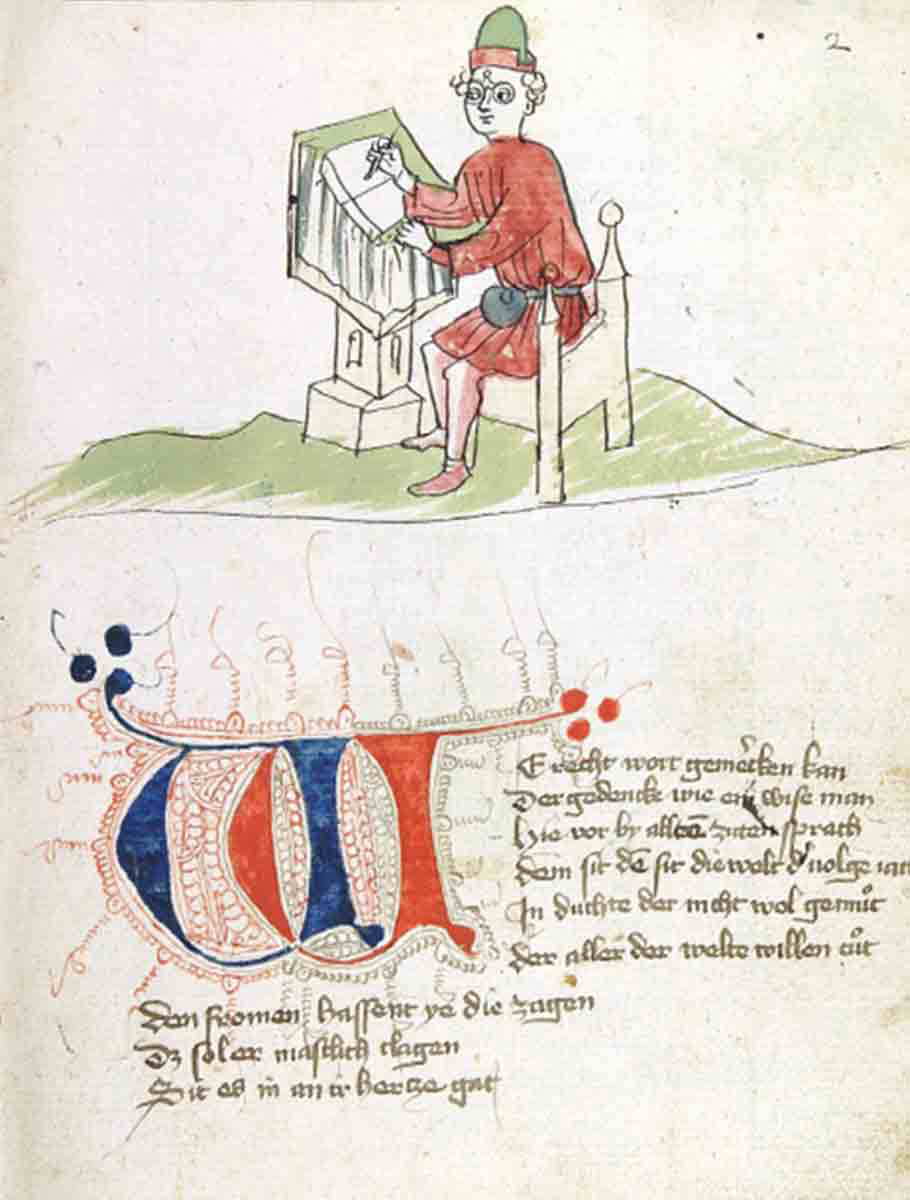 2
WE recht wort gem̉ecken kan
Der gedencke wie ein wise man
Hie vor by alten ziten sprach
dem sit dē sit die welt d' volge
In duchte der nicht wol gemuͦt
der aller der welte willen tuͦt
Den fromen hassent ye die zagen
Dz sol er clagen
Sit es in an ir hertze gat